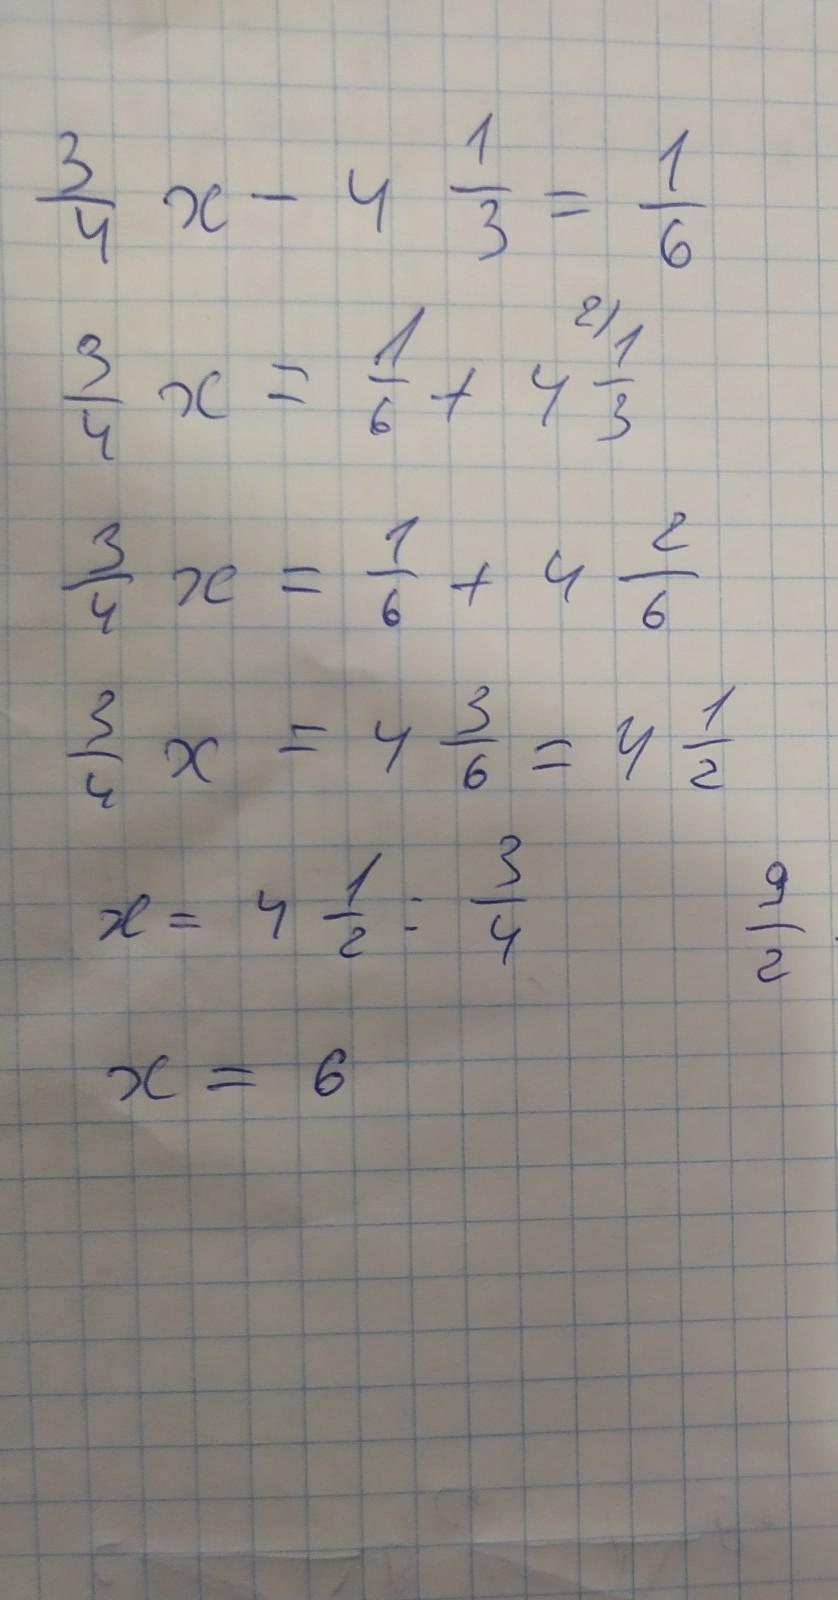 3/4 x - 4 1/3 = 1/6
3/4 x = 1/6 + 4 2) 1/3
3/4 x = 1/6 + 4 2/6
3/4 x = 4 3/6 = 4 1/2
x = 4 1/2 : 3/4 9/2
x = 6